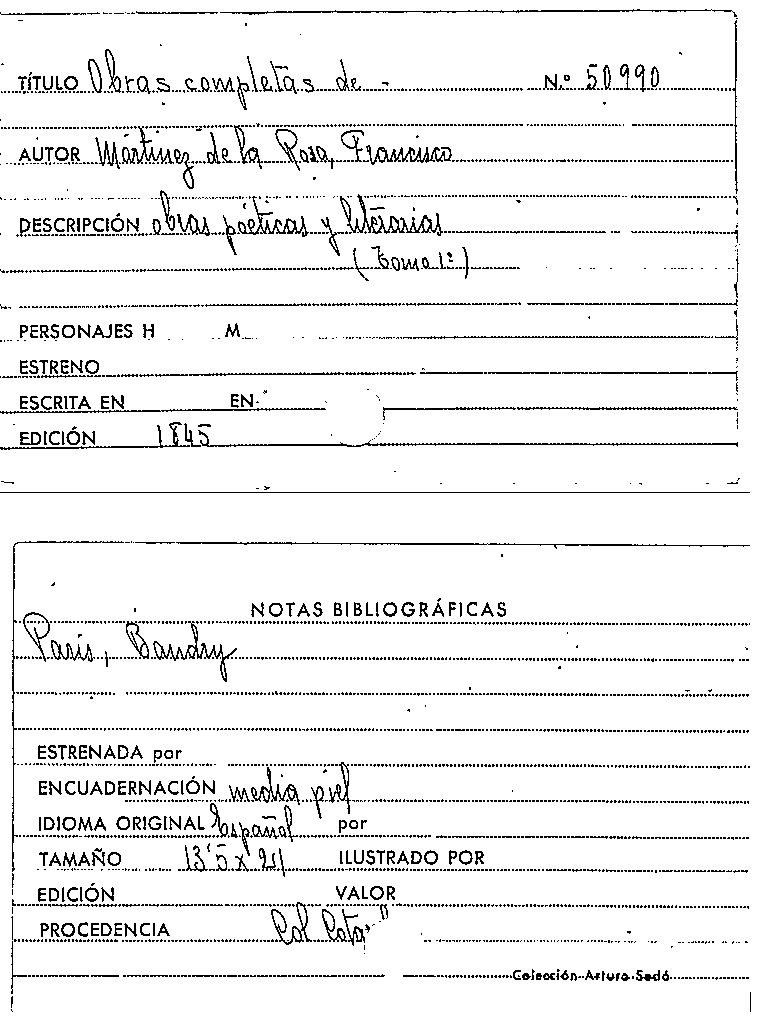 TÍTULO Obras completas de - N.º 50990
AUTOR Martinez de la Rosa, Francisco
DESCRIPCIÓN obras poéticas y literarias
(Tomo 1º)
PERSONAJES H M
ESTRENO
ESCRITA EN EN
EDICIÓN 1845
NOTAS BIBLIOGRÁFICAS
Paris, Baudry
ESTRENADA por
ENCUADERNACIÓN media piel
IDIOMA ORIGINAL Español por
TAMAÑO 13'5 x 21 ILUSTRADO POR
EDICIÓN VALOR
PROCEDENCIA Col
Colección Arturo Sedó